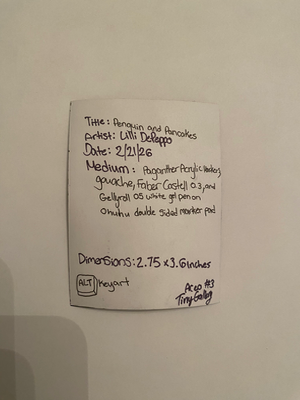 Title: Penguin and Pancakes
Artist: Lilli DePeppo
Date: 2/21/26
Medium: Acrylic Markers,
gouache, Faber Castell 0.3, and
Gellyroll 05 white gel pen on
Ohuhu double sided marker pad
Dimensions: 2.75 x 3.6 inches
ALT Keyart
Aceo #3
Tiny Gallery